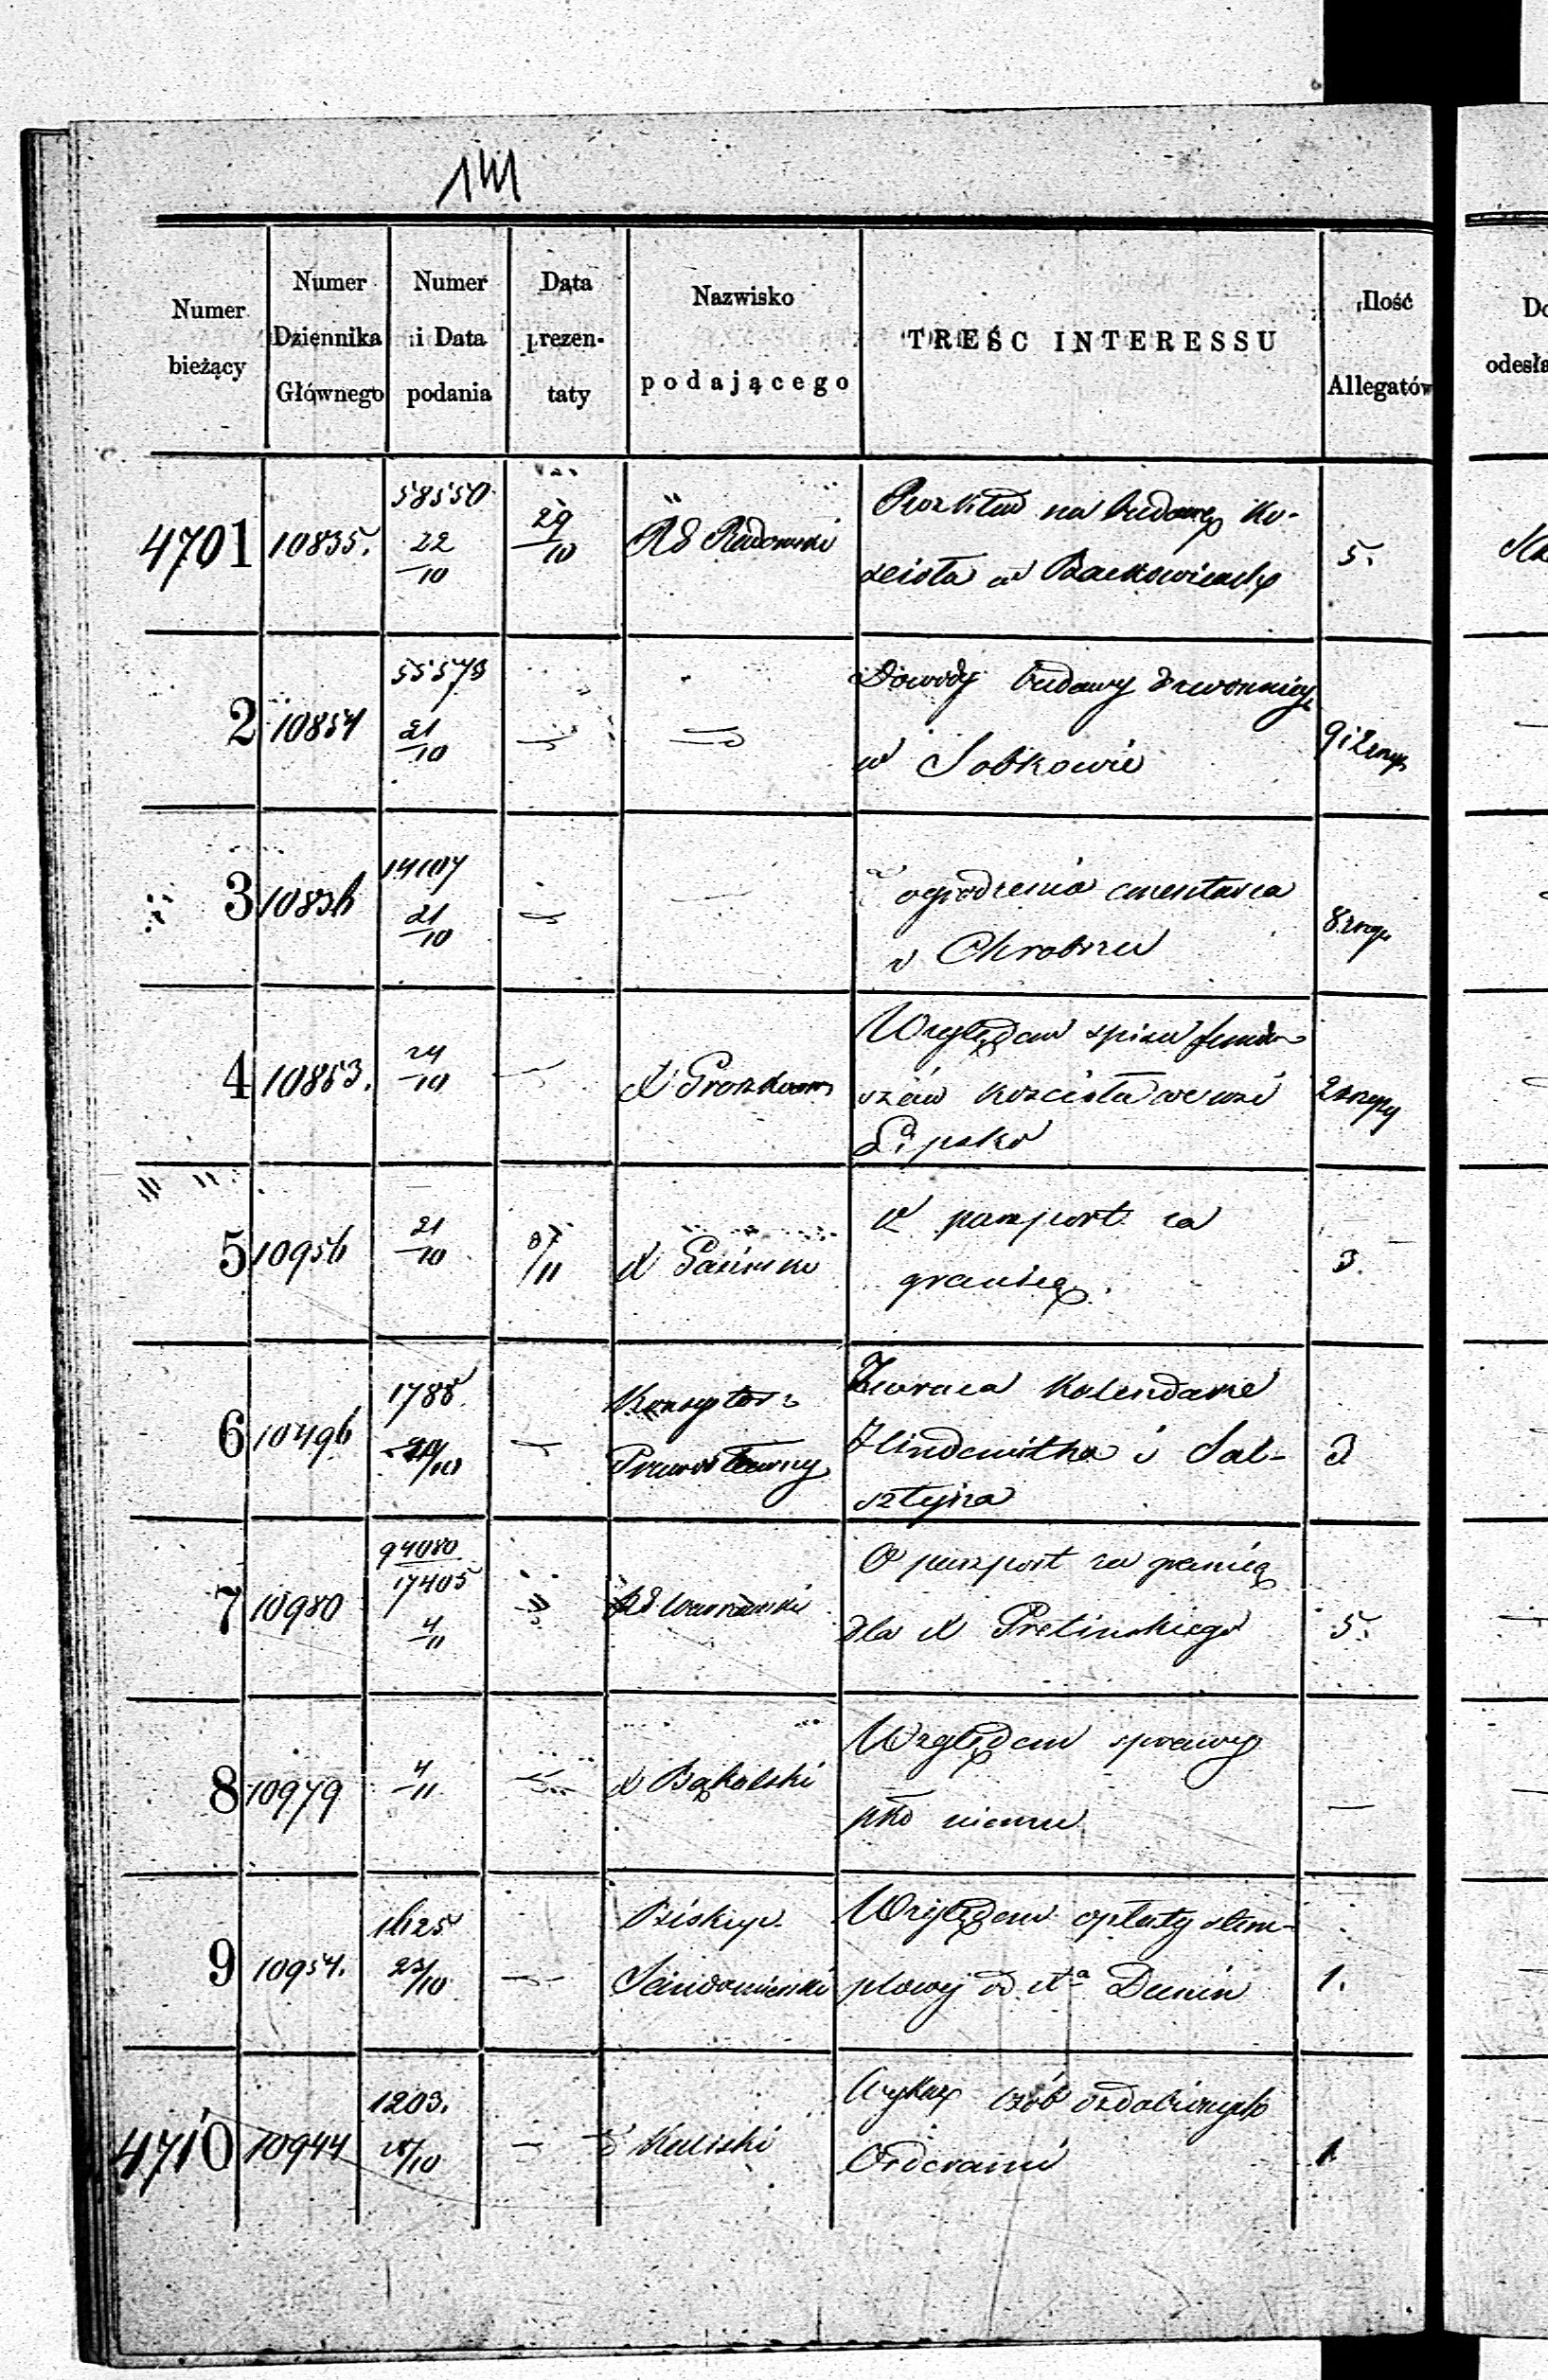 141
Numer bieżący | Numer Dziennika Głównego | Numer i Data podania | Data prezentaty | Nazwisko podającego | TREŚC INTERESSU | Ilość Allegatów
4701 | 10835. | 58550 22/10 | 29/10 | RG Radomski | Rozkład na budowę ko-
scioła w Backowicach | 5.
2 | 10854 | 55573 21/10 | Dowody budowy dzwonnicy
w Sobkowie | 9 i 2
3 | 14107 21/10 | ogrodzenia cmentarza
w Chrobrzu | 8
4 | 10853. | 24/10 | X | Względem spisu fundu-
szów kościoła we wsi
Lipsko | 2
5 | 10956 | 21/10 | X | O paszport za
granicę. | 3.
6 | 10496 | 1788 | Prawosławny | Zwraca Kalendarze
i Sal-
sztejna | 3
7 | 10980 | 94080 17405 4/11 | RG Warszawski | O paszport za granicę
dla X | 5.
8 | 10979 | 4/11 | X Bąkalski | Względem sprawy
pko niemu | —
9 | 10954. | 1625 23/10 | Biskup
Sandomierski | Względem opłaty stem-
plowej od Dunin | 1.
4710 | 10944 | 1203. /10 | Kaliski | Wykaz osób ozdobionych
Orderami | 1
Do
odesła